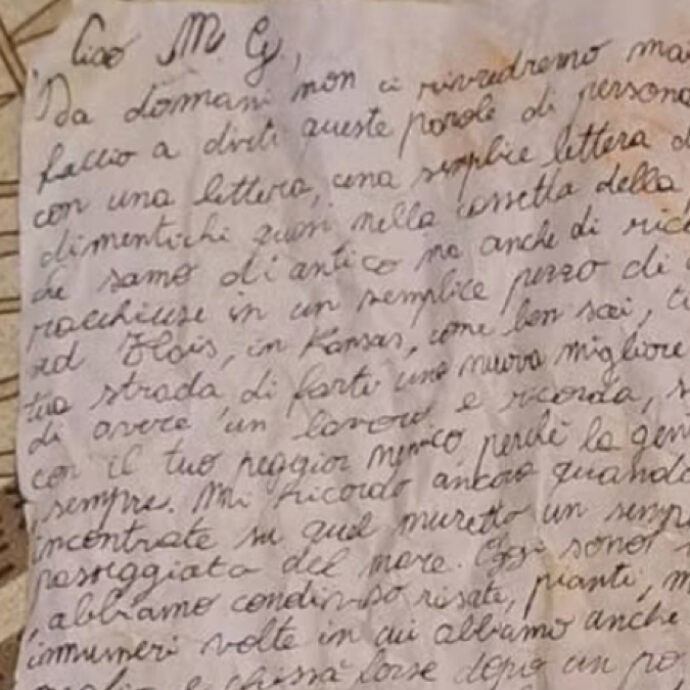 Ciao M. G.,
Da domani non ci rivedremo mai
faccio a dirti queste parole di persona
con una lettera, una semplice lettera
dimentichi quasi nella cassetta della
che sanno di antico ma anche di
racchiuse in un semplice pezzo di
ad Hois, in Kansas, come ben sai,
tua strada di farti una nuova migliore
di avere un lavoro e ricorda,
con il tuo peggior nemico perchè la
sempre. Mi ricordo ancora quando
incontrate su quel muretto un
passeggiata del mare. Oggi sono
abbiamo condiviso risate, pianti,
innumeri volte in cui abbiamo anche
e chissà forse dopo un po